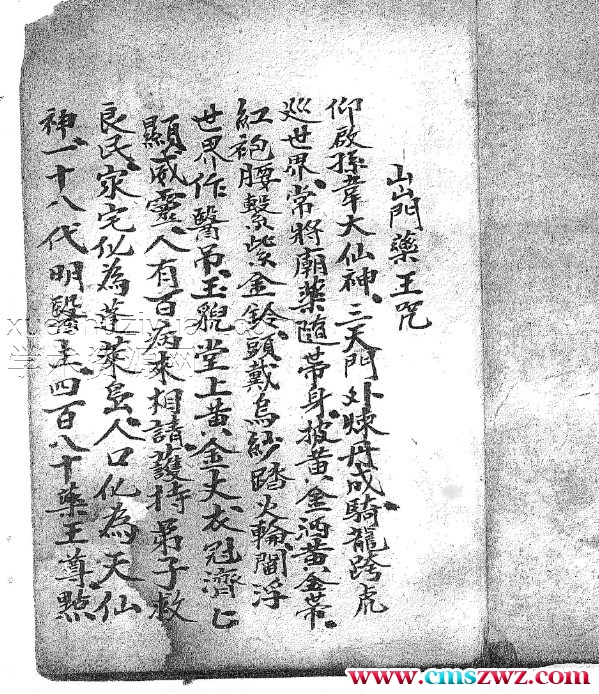 山山門藥王咒
仰啟孫韋大仙神、三天門外煉丹成、騎龍跨虎
巡世界、常將廟藥隨帶身、披黃金洒黃金帶、
紅袍腰繫紫金鈴、頭戴烏紗踏火輪、閻浮
世界作醫吊、玉貌堂上黃金丈、衣冠濟匕
顯威靈、人有百病來相請、護持弟子救
良民、家宅化為蓬萊島、人口化為天仙
神、一十八代明醫主、四百八十藥王尊、點
www.cmszwz.com